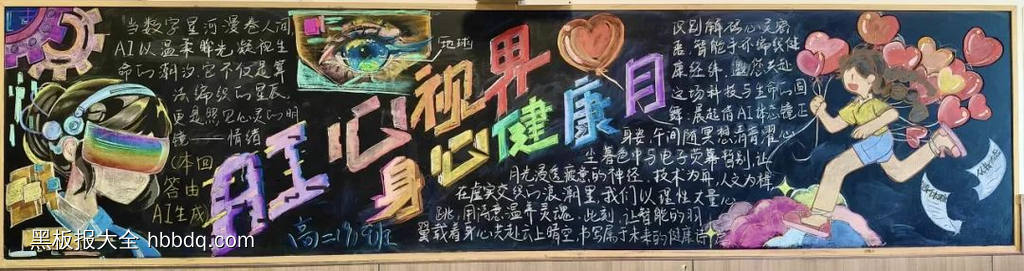 当数字星河漫卷人间,
AI以温柔眸光凝视生
命的潮汐,它不仅是算
法编织的星辰,
更是照见心灵的明
镜——情绪
(本回
答由
AI生成
地球
AI心视界
身心健康月
识别解码心灵密
语,智能手环编织健
康经纬,邀您共赴
这场科技与生命的回
舞:晨起看AI体态镜正
身姿,午间随冥想
坐暮色中与电子荧幕暂别,让
月光浸透疲惫的神经,技术为舟,人文为楫
在虚实交织的浪潮里,我们以理性丈量心
跳,用诗意温养灵魂,此刻,让智能的羽
翼载着身心共赴云上晴空,书写属于未来的健康诗
高二(9)班
黑板报大全 hbbdq.com